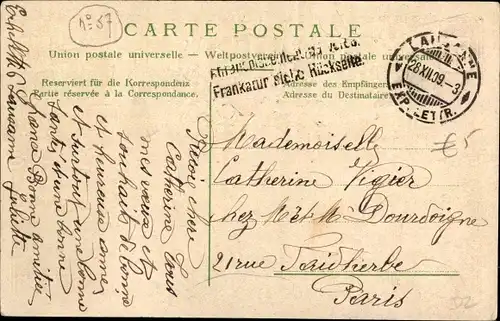 No 57
CARTE POSTALE
Union postale universelle — Weltpostverein
Reserviert für die Korrespondenz
Partie réservée à la Correspondance.
Adresse des Empfängers
Adresse du Destinataire
Frankatur siehe Rückseite
LAUSANNE
28.XII.09. - 3
EXP. LETTR.
£5
Mademoiselle
Catherine Vigier
chez M et M Dourdoigne
21 rue Faidherbe
Paris
Reçois chère
Catherine tous
mes vœux et
souhaits de bonne
et heureuse année
et surtout une bonne
Santé et une bonne
Lausanne
Juliette
D2